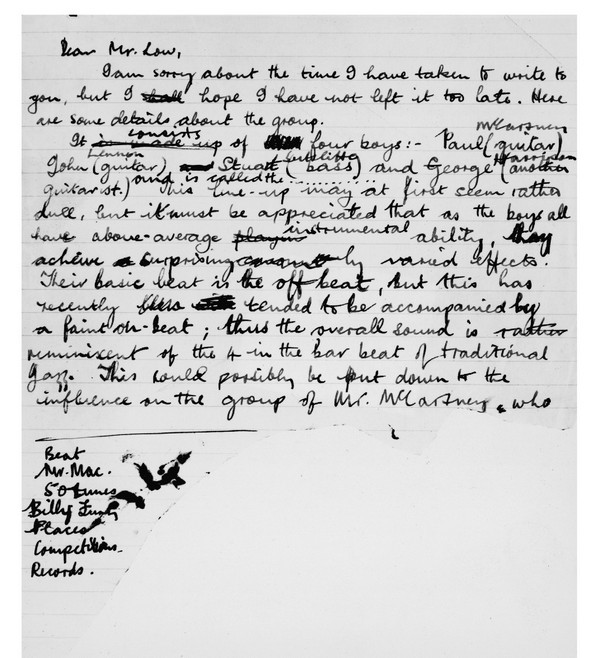 Dear Mr. Low,
I am sorry about the time I have taken to write to
you, but I shall hope I have not left it too late. Here
are some details about the group.
consists McCartney
It is made up of four boys:- Paul (guitar)
Lennon Sutcliffe Harrison
John (guitar) and Stuart (bass) and George (another
and is called the ............
guitarist.) This line-up may at first seem rather
dull, but it must be appreciated that as the boys all
instrumental
have above-average playing ability, they
achieve a surprisingly varied effects.
Their basic beat is the off beat, but this has
recently tended to be accompanied by
a faint on-beat; thus the overall sound is rather
reminiscent of the 4 in the bar beat of traditional
Jazz. This could possibly be put down to the
influence on the group of Mr. McCartney, who
Beat
Mr. Mac.
50 tunes
Billy Fury
Places
Competitions.
Records.